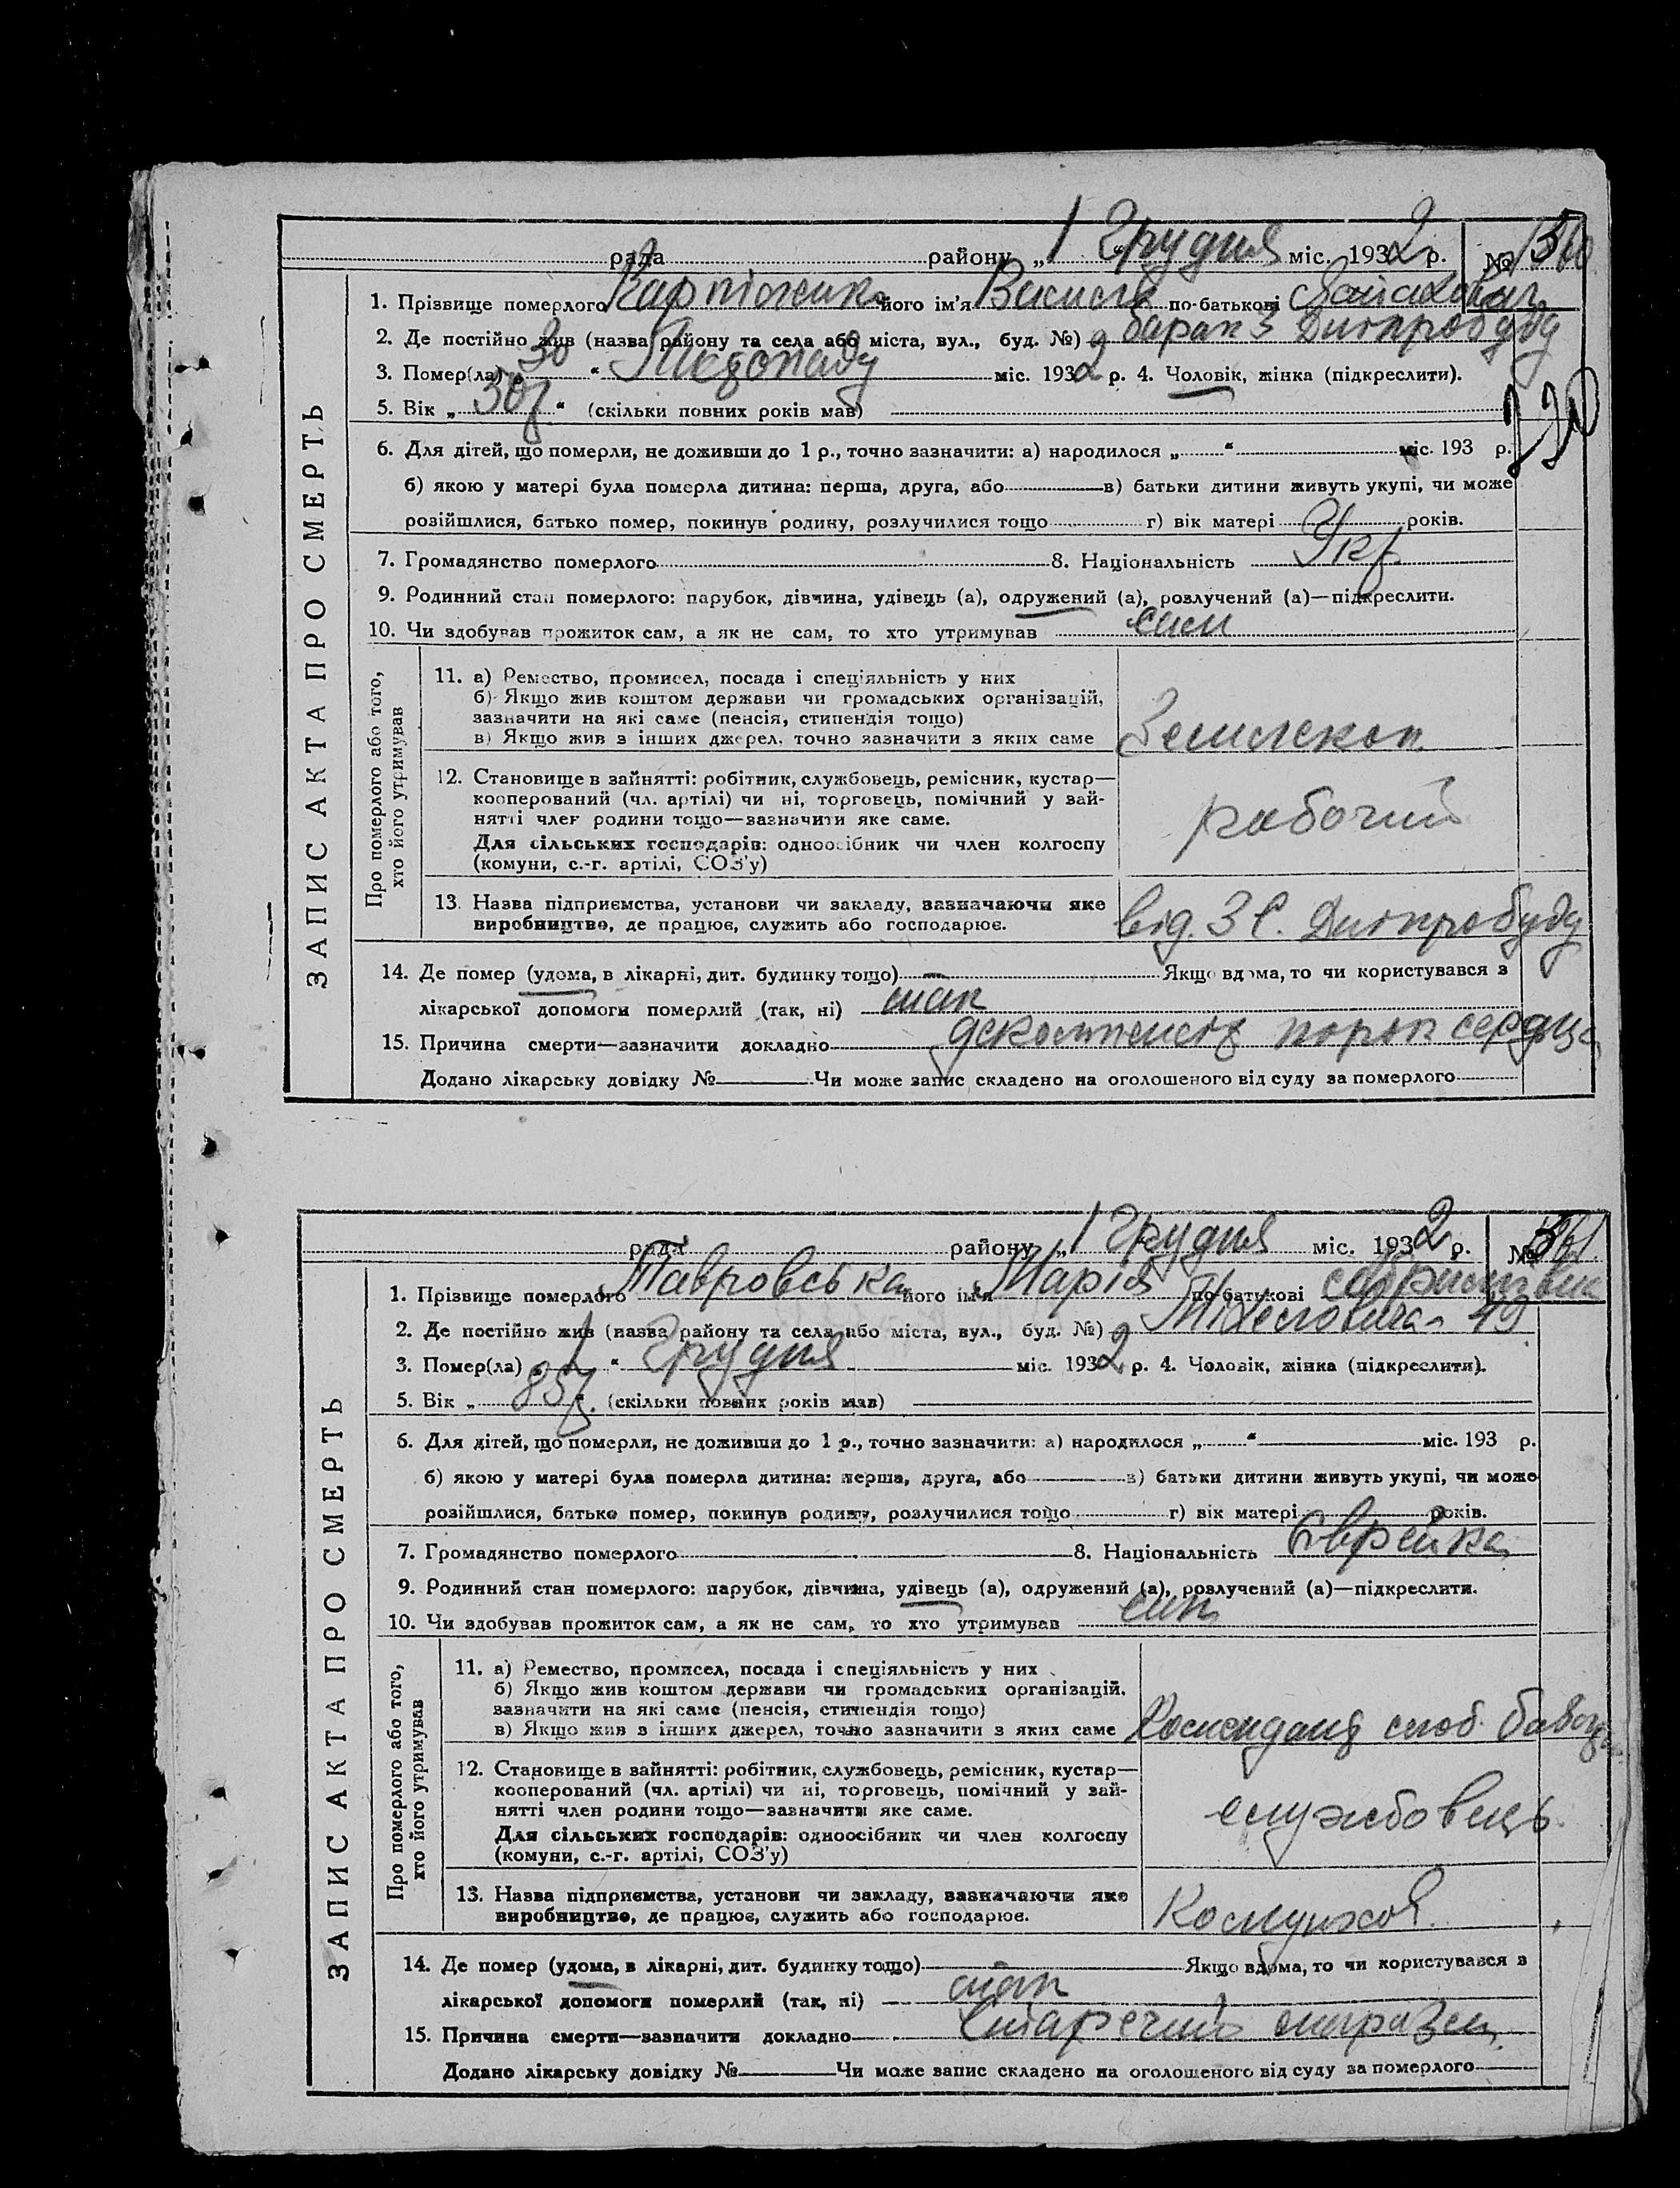 рада району „1“ Грудня міс. 1932 р. №
1. Прізвище померлого його ім'я по-батькові
2. Де постійно жив (назва району та села або міста, вул., буд. №) барак 3 Дніпробуду
3. Помер(ла) „30“ Листопаду міс. 1932 р. 4. Чоловік, жінка (підкреслити).
5. Вік „ “ (скільки повних років мав)
6. Для дітей, що померли, не доживши до 1 р., точно зазначити: а) народилося „ “ міс. 193 р.
б) якою у матері була померла дитина: перша, друга, або в) батьки дитини живуть укупі, чи може
розійшлися, батько помер, покинув родину, розлучилися тощо г) вік матері років.
7. Громадянство померлого 8. Національність Укр.
9. Родинний стан померлого: парубок, дівчина, удівець (а), одружений (а), розлучений (а)—підкреслити.
10. Чи здобував прожиток сам, а як не сам, то хто утримував сам
ЗАПИС АКТА ПРО СМЕРТЬ
Про померлого або того,
хто його утримував
11. а) Ремество, промисел, посада і спеціяльність у них
б) Якщо жив коштом держави чи громадських організацій,
зазначити на які саме (пенсія, стипендія тощо)
в) Якщо жив з інших джерел, точно зазначити з яких саме
Землекоп
12. Становище в зайнятті: робітник, службовець, ремісник, кустар—
кооперований (чл. артілі) чи ні, торговець, помічний у зай-
нятті член родини тощо—зазначити яке саме.
Для сільських господарів: одноосібник чи член колгоспу
(комуни, с.-г. артілі, СОЗ'у)
рабочий
13. Назва підприємства, установи чи закладу, зазначаючи яке
виробництво, де працює, служить або господарює.
від. З С. Дніпробуду
14. Де помер (удома, в лікарні, дит. будинку тощо) Якщо вдома, то чи користувався з
лікарської допомоги померлий (так, ні) так
15. Причина смерти—зазначити докладно порок сердца
Додано лікарську довідку № Чи може запис складено на оголошеного від суду за померлого
рада району „1 Грудня міс. 1932 р. №
1. Прізвище померлого Тавровська його ім'я Марія по-батькові
2. Де постійно жив (назва району та села або міста, вул., буд. №) 49
3. Помер(ла) „1“ Грудня міс. 1932 р. 4. Чоловік, жінка (підкреслити).
5. Вік „85р. (скільки повних років мав)
6. Для дітей, що померли, не доживши до 1 р., точно зазначити: а) народилося „ “ міс. 193 р.
б) якою у матері була померла дитина: перша, друга, або в) батьки дитини живуть укупі, чи може
розійшлися, батько помер, покинув родину, розлучилися тощо г) вік матері років.
7. Громадянство померлого 8. Національність Єврейка
9. Родинний стан померлого: парубок, дівчина, удівець (а), одружений (а), розлучений (а)—підкреслити.
10. Чи здобував прожиток сам, а як не сам, то хто утримував син
ЗАПИС АКТА ПРО СМЕРТЬ
Про померлого або того,
хто його утримував
11. а) Ремество, промисел, посада і спеціяльність у них
б) Якщо жив коштом держави чи громадських організацій,
зазначити на які саме (пенсія, стипендія тощо)
в) Якщо жив з інших джерел, точно зазначити з яких саме
12. Становище в зайнятті: робітник, службовець, ремісник, кустар—
кооперований (чл. артілі) чи ні, торговець, помічний у зай-
нятті член родини тощо—зазначити яке саме.
Для сільських господарів: одноосібник чи член колгоспу
(комуни, с.-г. артілі, СОЗ'у)
службовець
13. Назва підприємства, установи чи закладу, зазначаючи яке
виробництво, де працює, служить або господарює.
Комунхоз
14. Де помер (удома, в лікарні, дит. будинку тощо) Якщо вдома, то чи користувався з
лікарської допомоги померлий (так, ні) так
15. Причина смерти—зазначити докладно Старечий маразм
Додано лікарську довідку № Чи може запис складено на оголошеного від суду за померлого